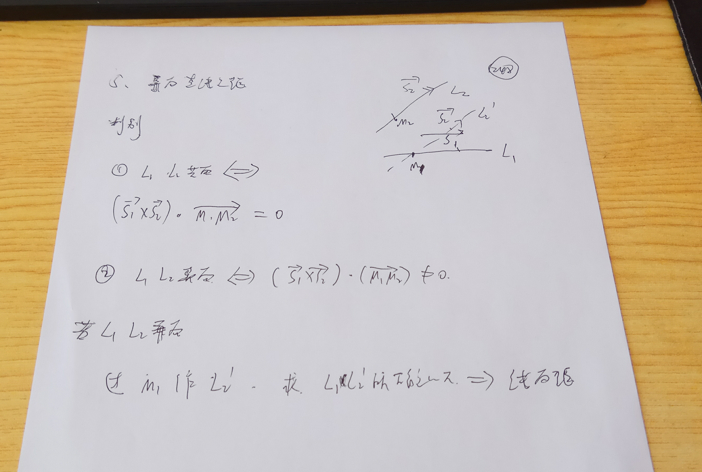 5、异面直线之距
判别
① L₁ L₂ 共面 ⟺
(S₁→×S₂→)·M₁M₂→ = 0
② L₁ L₂ 异面 ⟺ (S₁→×S₂→)·(M₁M₂→) ≠ 0.
若 L₁ L₂ 异面
过 M₁ 作 L₂′. 求 L₁ L₂′ ⟹ 线面距
S₂→ L₂
M₂ S₂→ L₂′
S₁ L₁
M₁